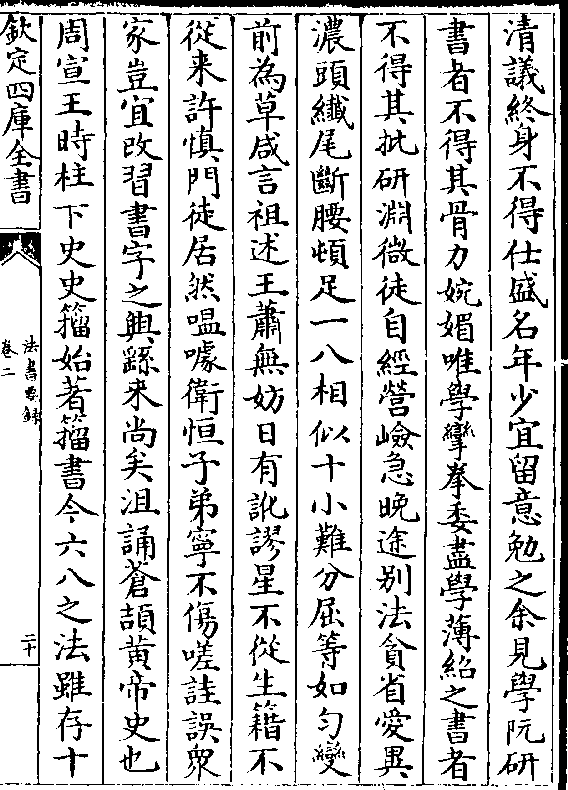 清議終身不得仕盛名年少宜留意勉之余見學阮研
書者不得其骨力婉媚唯學攣拳委盡學薄紹之書者
不得其批研淵微徒自經營嶮急晚途别法貪省愛異
濃頭纎尾斷腰頓足一八相似十小難分屈等如匀變
前為草咸言祖述王蕭無妨日有訛謬星不從生籍不
從来許慎門徒居然嗢噱衛恒子弟寧不傷嗟詿誤衆
家豈宜改習書字之興繇来尚矣沮誦蒼頡黄帝史也
周宣王時柱下史史籀始著籀書今六八之法雖存十
欽定四庫全書
法書要録
卷二
二十